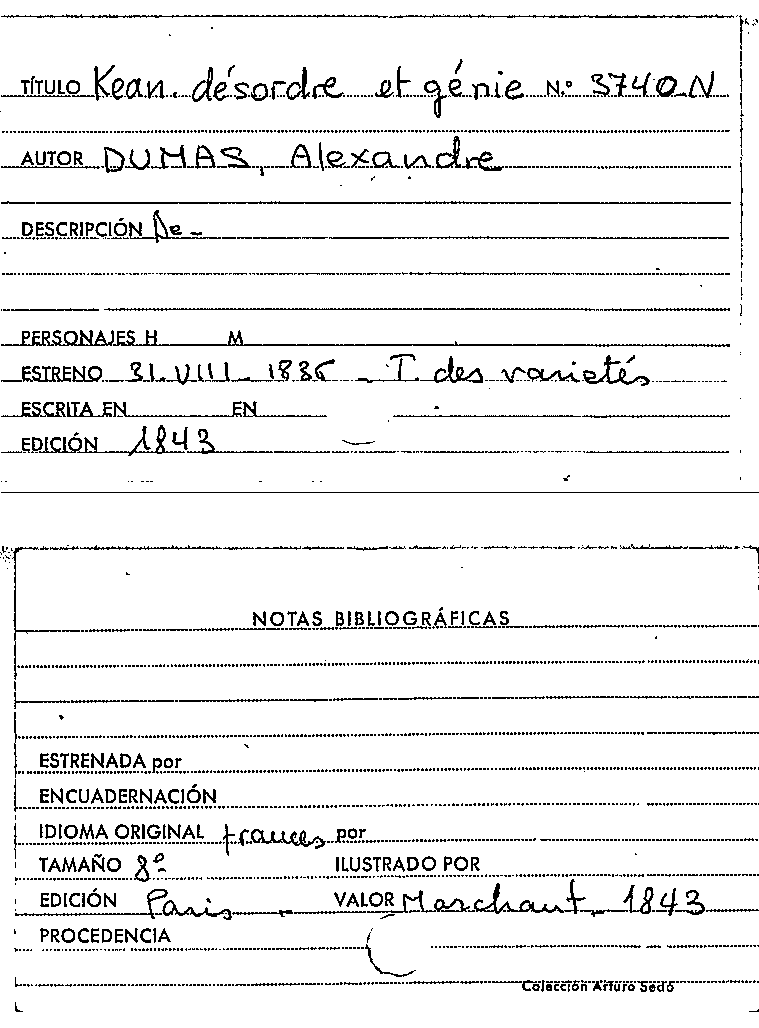 TÍTULO Kean. désordre et génie N.º 3740N
AUTOR DUMAS, Alexandre
DESCRIPCIÓN De -
PERSONAJES H M
ESTRENO 31.VIII- 1836 - T. des varietés
ESCRITA EN EN
EDICIÓN 1843
NOTAS BIBLIOGRÁFICAS
ESTRENADA por
ENCUADERNACIÓN
IDIOMA ORIGINAL frances por
TAMAÑO 8º ILUSTRADO POR
EDICIÓN Paris - VALOR Marchant - 1843
PROCEDENCIA
Colección Arturo Sedó